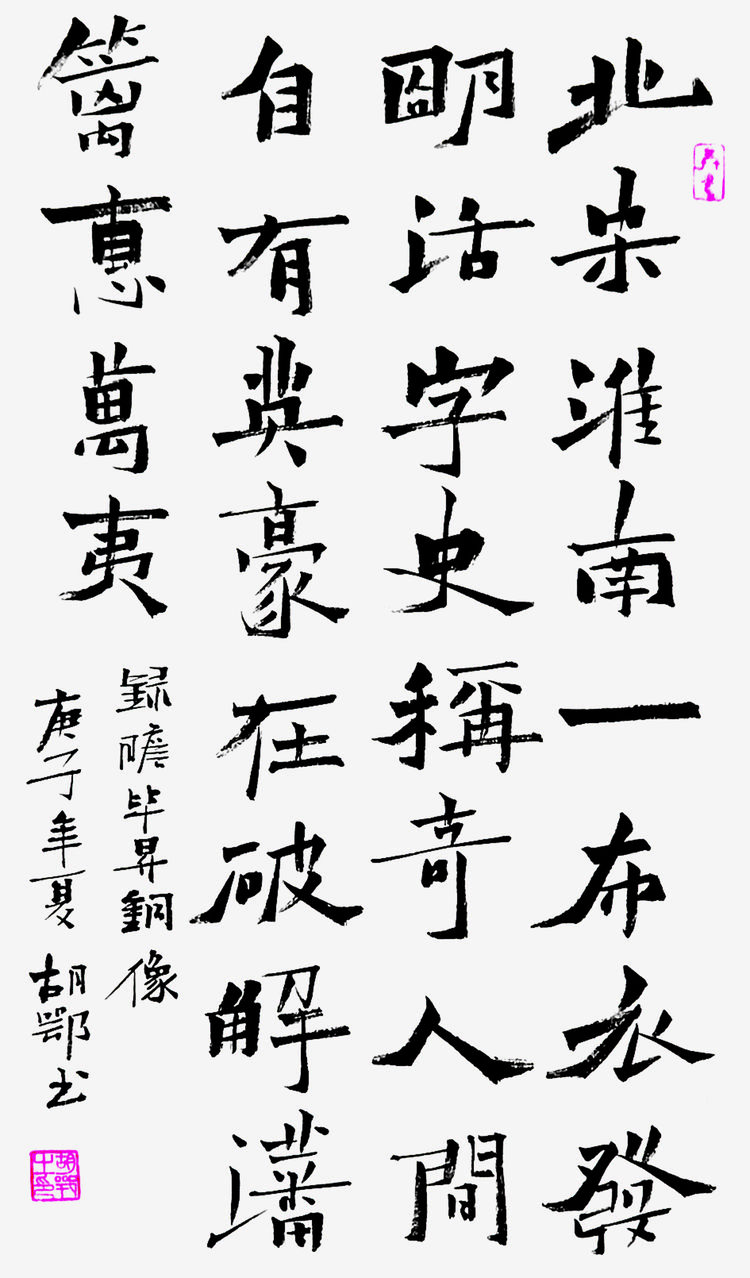 北宋淮南一布衣發
明活字史稱奇人間
自有英豪在破解藩
籬惠萬夷
録瞻毕昇銅像
庚子年夏 胡鄂书
胡鄂中印